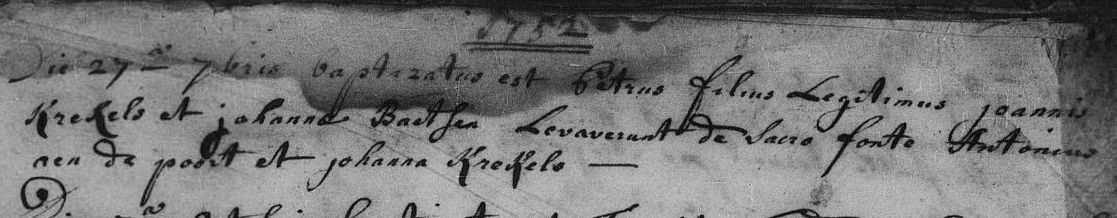 1752
Die 27a 7bris baptizatus est Petrus filius Legitimus joannis
Krekels et johanna Baetsen Levaverunt de Sacro fonte Antonius
aen de poort et johanna Krekels —